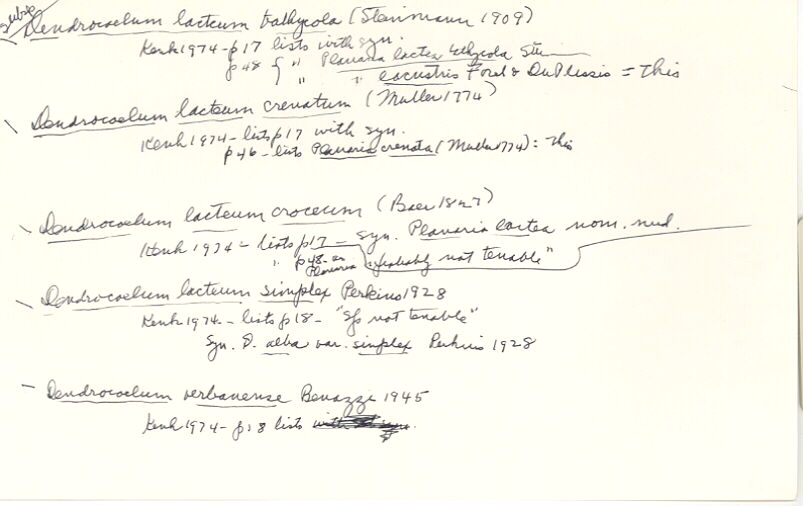 subsp
Dendrocoelum lacteum bathycola (Steinmann 1909)
Kenk 1974 - p17 lists with syn.
p48 { " Planaria lactea bathycola Stei
" " lacustris Forel & DuPlessis = This
\ Dendrocoelum lacteum crenatum (Muller 1774)
Kenk 1974 - lists p17 with syn.
p46 - lists Planaria crenata (Muller 1774) = This
\ Dendrocoelum lacteum croceum (Baer 1827)
Kenk 1974 - lists p17 - syn. Planaria lactea nom. nud.
" p48 - as Planaria "probably not tenable"
\ Dendrocoelum lacteum simplex Perkins 1928
Kenk 1974 - lists p18 - "Sp not tenable"
Syn. D. alba var. simplex Perkins 1928
- Dendrocoelum verbanense Benazzi 1945
Kenk 1974 - p18 lists